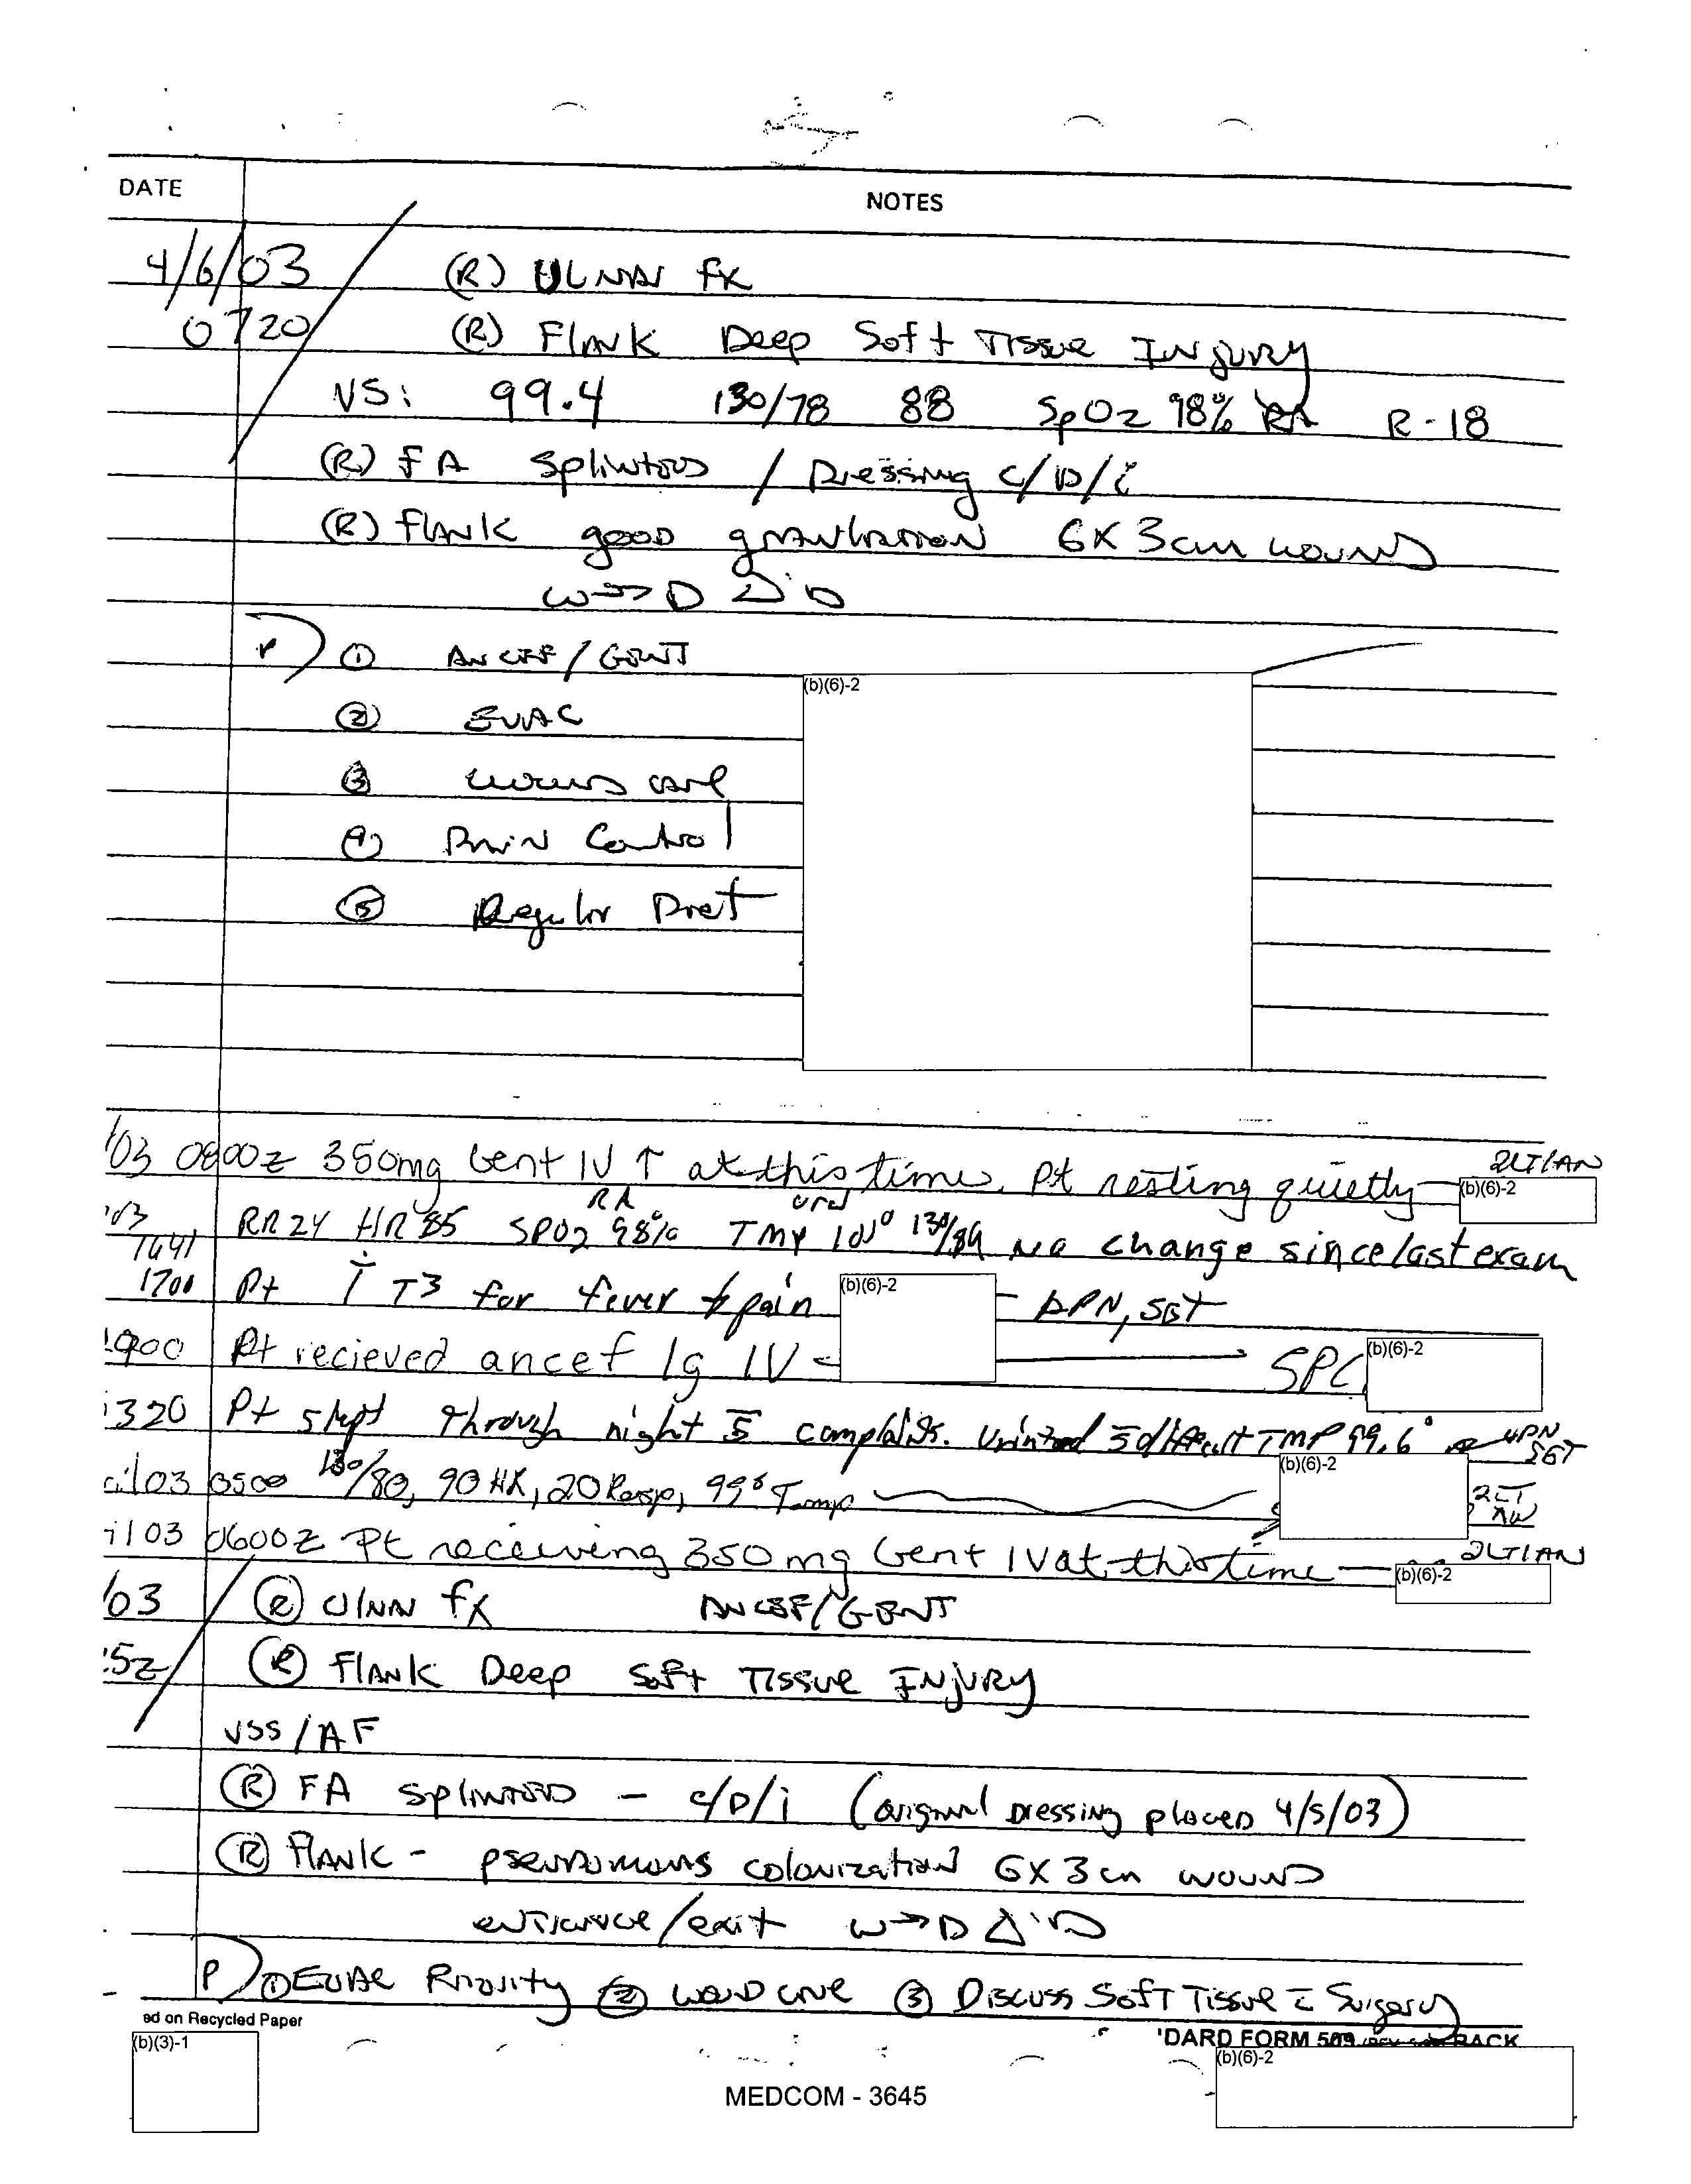 DATE NOTES
4/6/03 (R) ULNAR fx
0720 (R) Flank Deep Soft Tissue Injury
VS: 99.4 130/78 88 SpO2 98% RA R-18
(R) FA splinted / Dressing c/D/i
(R) flank good granulation 6x3cm wound
w→D Δ'D
P) ① ANCEF/GENT
(b)(6)-2
② EVAC
③ wound care
④ Pain Control
⑤ Regular Diet
/03 0800z 350mg Gent IV ↑ at this time. Pt resting quietly 2LT/AN
(b)(6)-2
RA oral
/03 1641 RR 24 HR 85 SPO2 98% TMP 101° 130/84 no change since last exam
1700 Pt T3 for fever & pain (b)(6)-2 LPN, SGT
1900 Pt recieved ancef 1g IV SPC (b)(6)-2
320 Pt slept through night s̄ complaints. Urinated s̄ TMP 99.6° LPN SGT
(b)(6)-2
il03 0500 130/80, 90 HR, 20 Resp, 99⁶ Temp 2LT AN
il03 0600z Pt receiving 350mg Gent IV at this time 2LT/AN
(b)(6)-2
/03 Ⓡ ULNAR fx ANCEF/GENT
5z Ⓡ Flank Deep Soft Tissue Injury
VSS/AF
Ⓡ FA splinted - c/D/i (original Dressing placed 4/5/03)
Ⓡ Flank - pseudomonas colonization 6x3cm wound
entrance/exit w→D Δ'D
P) ① EVAC Priority ② wound care ③ Discuss Soft Tissue c̄ Surgery
ed on Recycled Paper
DARD FORM 509 BACK
(b)(3)-1
(b)(6)-2
MEDCOM - 3645